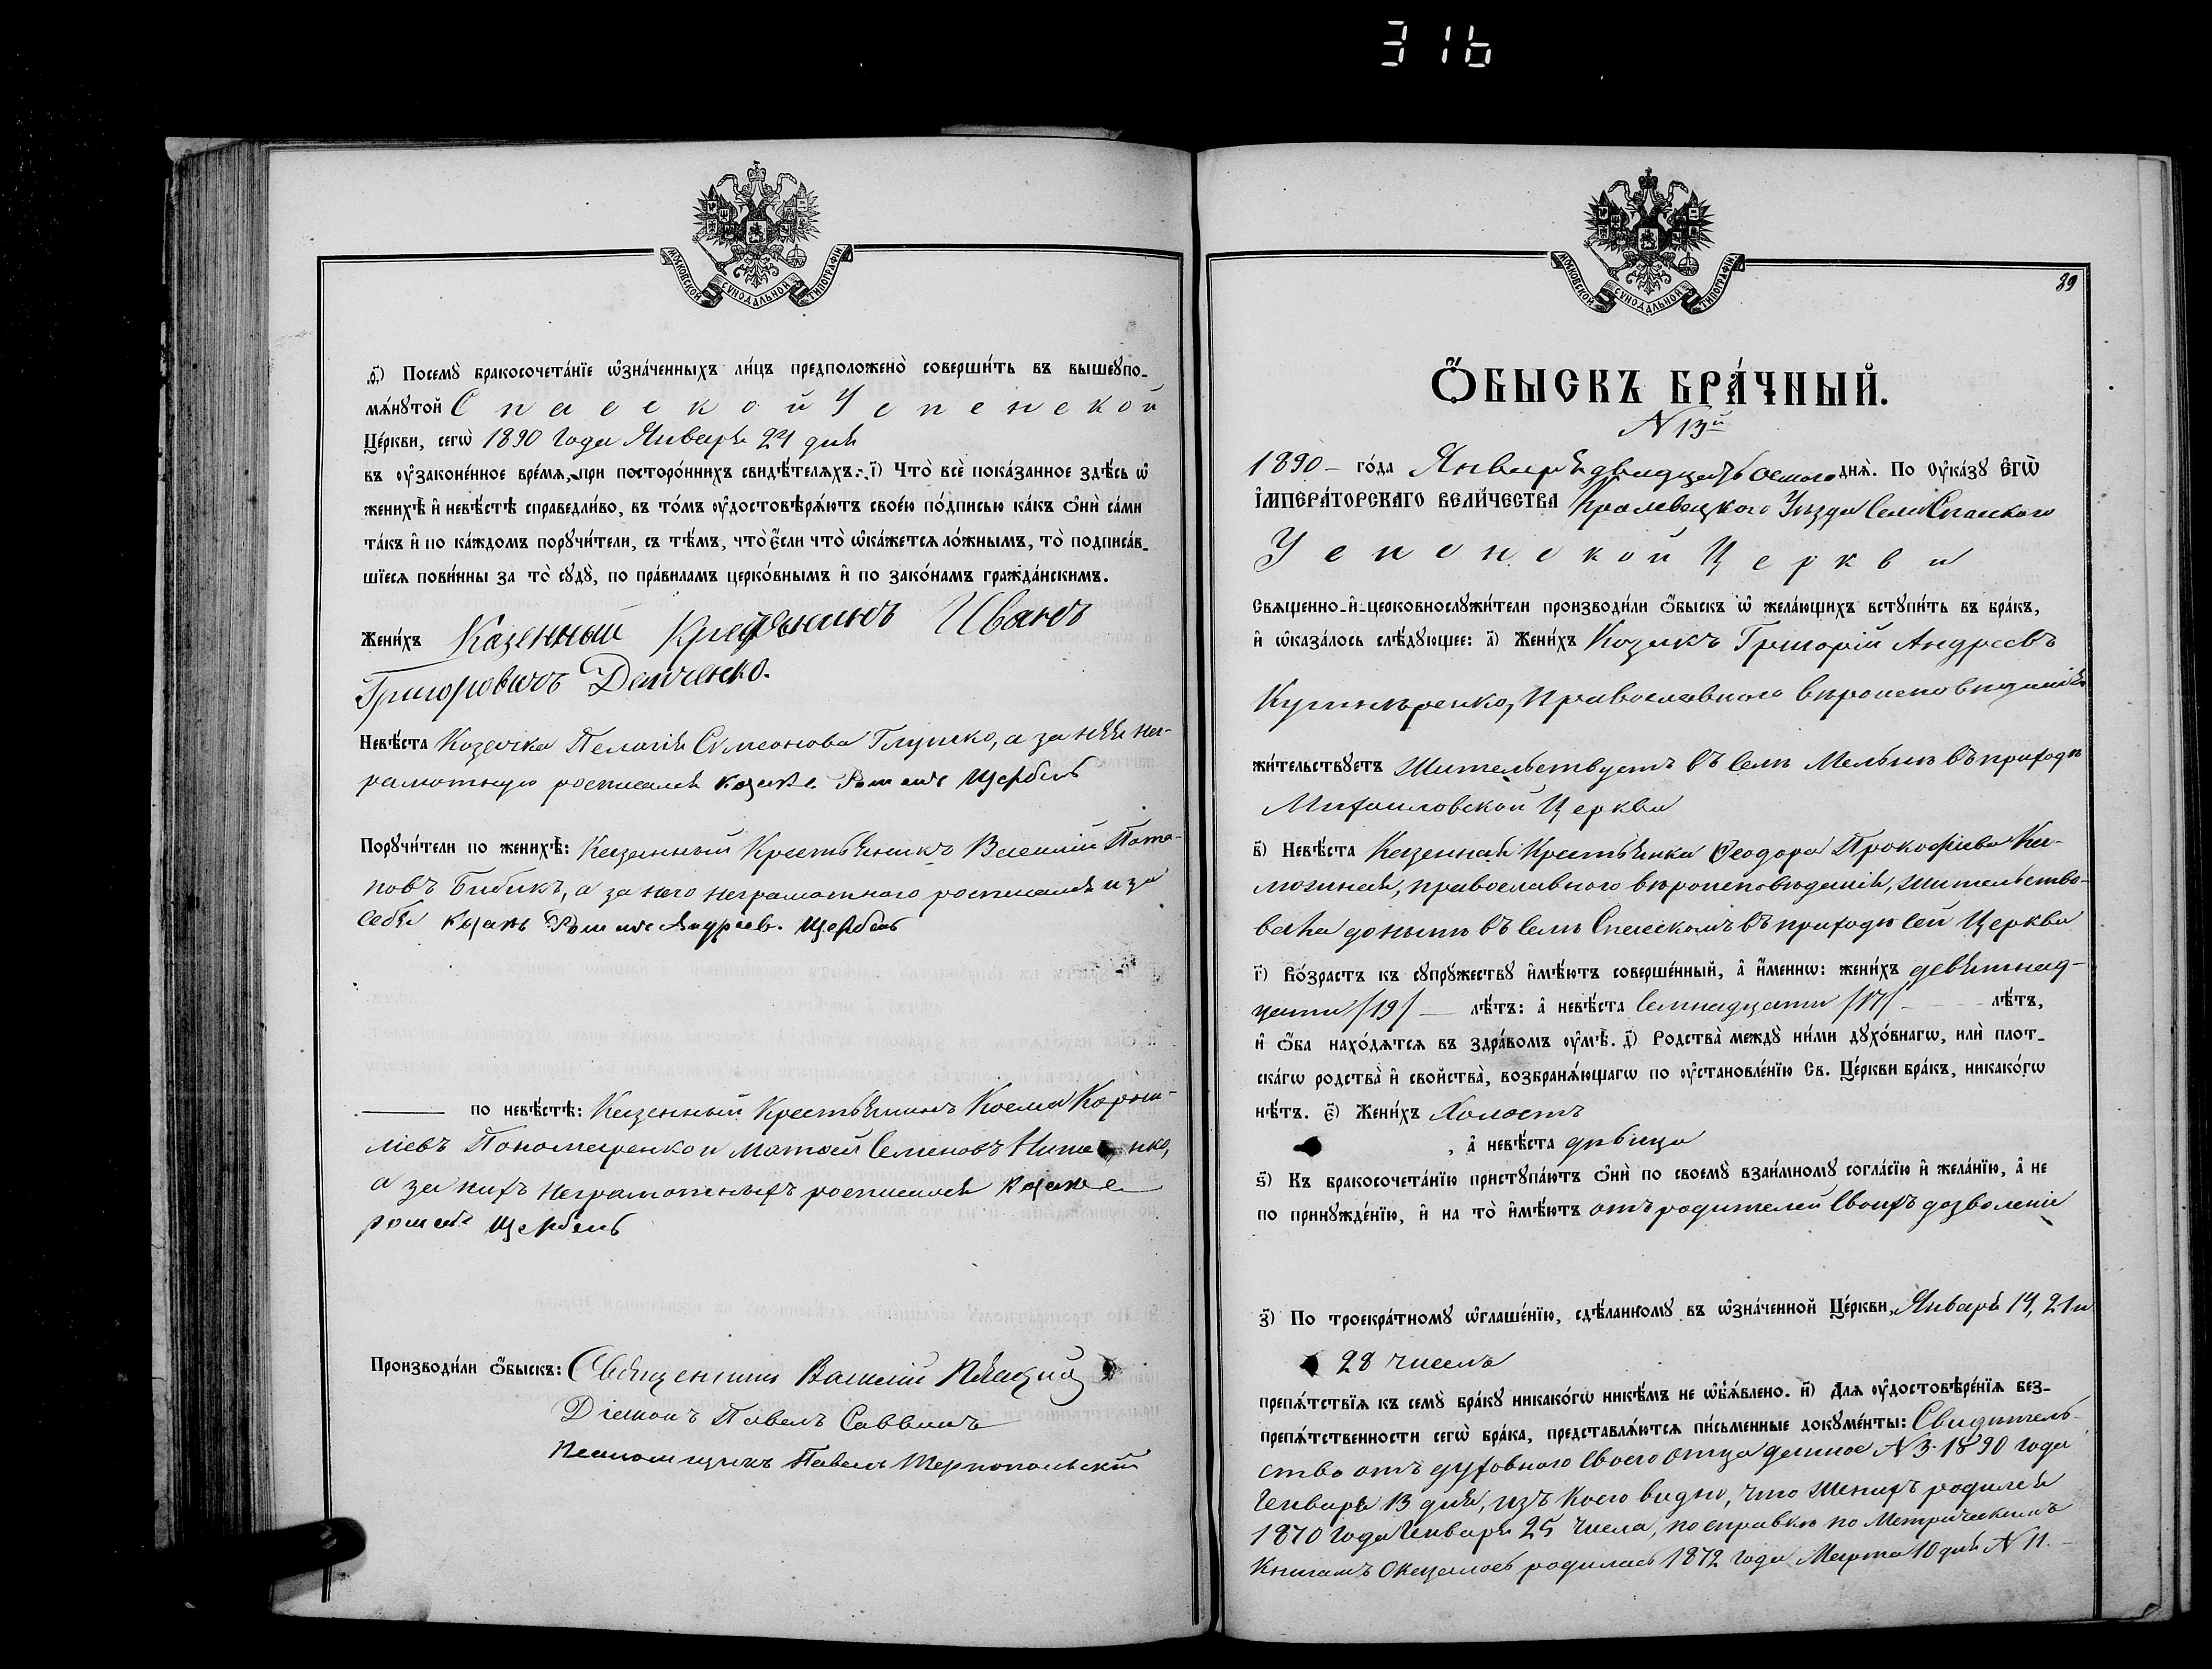 316
МОСКОВСКОЙ СУНОДАЛЬНОЙ ТИПОГРАФІИ
ѳ҃) Посемꙋ̀ бракосочета́нїе ѡ҆зна́ченныхъ ли́цъ предположено̀ соверши́ть въ вышеꙋпо-
мѧ́нꙋтой Спасской Успенской
Це́ркви, сегѡ̀ 1890 года Января 24 дня
въ ᲂу҆законе́нное вре́мѧ, при посторо́ннихъ свидѣ́телѧхъ. і҃) Что̀ всѐ пока́занное здѣ́сь ѡ҆
женихѣ̀ и҆ невѣ́стѣ справедли́во, въ то́мъ ᲂу҆достовѣрѧ́ютъ свое́ю по́дписью ка́къ ѻ҆нѝ са́ми
та́къ и҆ по ка́ждомъ порꙋчи́тели, съ тѣ́мъ, что̀ є҆́сли что̀ ѡ҆ка́жетсѧ ло́жнымъ, то̀ подписа́в-
шїесѧ пови́нны за то̀ сꙋдꙋ̀, по пра́виламъ церко́внымъ и҆ по зако́намъ гражда́нскимъ.
Жени́хъ Казенный Крестьянинъ Иванъ
Григоровичъ Демченко.
Невѣ́ста Козачка Пелагія Симеонова Глушко, а за нея нег-
рамотную росписался козакъ Роман Щербакъ
Порꙋчи́тели по женихѣ̀: Казенный Крестьянинъ Василій Пота-
повъ Бибикъ, а за него неграмотного росписался и за
себя козакъ Роман Андреев. Щербакъ
по невѣ́стѣ: Казенный Крестьянинъ Косма Корни-
ліевъ Пономаренко и Матѳей Семеновъ
а за нихъ неграмотныхъ росписался козакъ
Роман Щербакъ
Производи́ли ѻ҆́быскъ: Священникъ Василій
Діаконъ Павелъ Саввинъ
Псаломщикъ Павелъ Тернопольскій
МОСКОВСКОЙ СУНОДАЛЬНОЙ ТИПОГРАФІИ
39
Ѻ҆́БЫСКЪ БРА́ЧНЫЙ.
N 13й
1890 – го́да Января двадцать осмого днѧ̀. По ᲂу҆ка́зꙋ Є҆гѡ̀
І҆мпера́торскагѡ вели́чества Кролевецкого Уѣзда Села Спаского
Успенской Церкви
Свѧщенно-и҆-церковнослꙋжи́тели производи́ли ѻ҆́быскъ ѡ҆ жела́ющихъ встꙋпи́ть въ бра́къ,
и҆ ѡ҆каза́лось слѣ́дꙋющее: а҃) Жени́хъ Козакъ Григорій Андреевъ
Кушнѣренко, Православного вѣроисповѣданія
жи́тельствꙋетъ Жительствуетъ въ Селѣ Мельнѣ въ приходѣ
Михаиловской Церкви
в҃) Невѣ́ста Казенная Крестьянка Ѳеодора Прокофіева Ка-
православного вѣроисповѣданія, жительство-
вала донынѣ въ Селѣ Спасскомъ въ приходѣ сей Церкви
г҃) Во́зрастъ къ сꙋпрꙋ́жествꙋ и҆мѣ́ютъ соверше́нный, а҆ и҆́меннѡ: жени́хъ девятнад-
цати /19/ — лѣ́тъ: а҆ невѣ́ста Семнадцати /17/ — лѣ́тъ,
и҆ ѻ҆́ба нахо́дѧтсѧ въ здра́вомъ ᲂу҆мѣ̀. д҃) Родства̀ междꙋ̀ ни́ми дꙋхо́внагѡ, и҆лѝ плот-
ска́гѡ родства̀ и҆ сво́йства, возбранѧ́ющагѡ по ᲂу҆становле́нїю Св. Це́ркви бра́къ, никако́гѡ
нѣ́тъ. є҃) Жени́хъ Холостъ
, а҆ невѣ́ста дѣвица
ѕ҃) Къ бракосочета́нїю пристꙋпа́ютъ ѻ҆нѝ по своемꙋ̀ взаи́мномꙋ согла́сїю и҆ жела́нїю, а҆ не
по принꙋжде́нїю, и҆ на то̀ и҆мѣ́ютъ отъ родителей своихъ дозволеніе
з҃) По троекра́тномꙋ ѡ҆глаше́нїю, сдѣ́ланномꙋ въ ѡ҆зна́ченной Це́ркви, Января 14, 21 и
28 числъ
препѧ́тствїѧ къ семꙋ̀ бра́кꙋ никако́гѡ никѣ́мъ не ѡ҆б̾ѧ́влено. и҃) Длѧ ᲂу҆достовѣре́нїѧ без-
препѧ́тственности сегѡ̀ бра́ка, представлѧ́ютсѧ пи́сьменные докꙋме́нты: Свидѣтель-
ство отъ духовного своего отца данное N 3. 1890 года
Генваря 13 дня, изъ коего видно, что женихъ родился
1870 года Генваря 25 числа, по справкѣ по Метрическимъ
Книгамъ оказалось родилась 1872 года Марта 10 дня N 11.